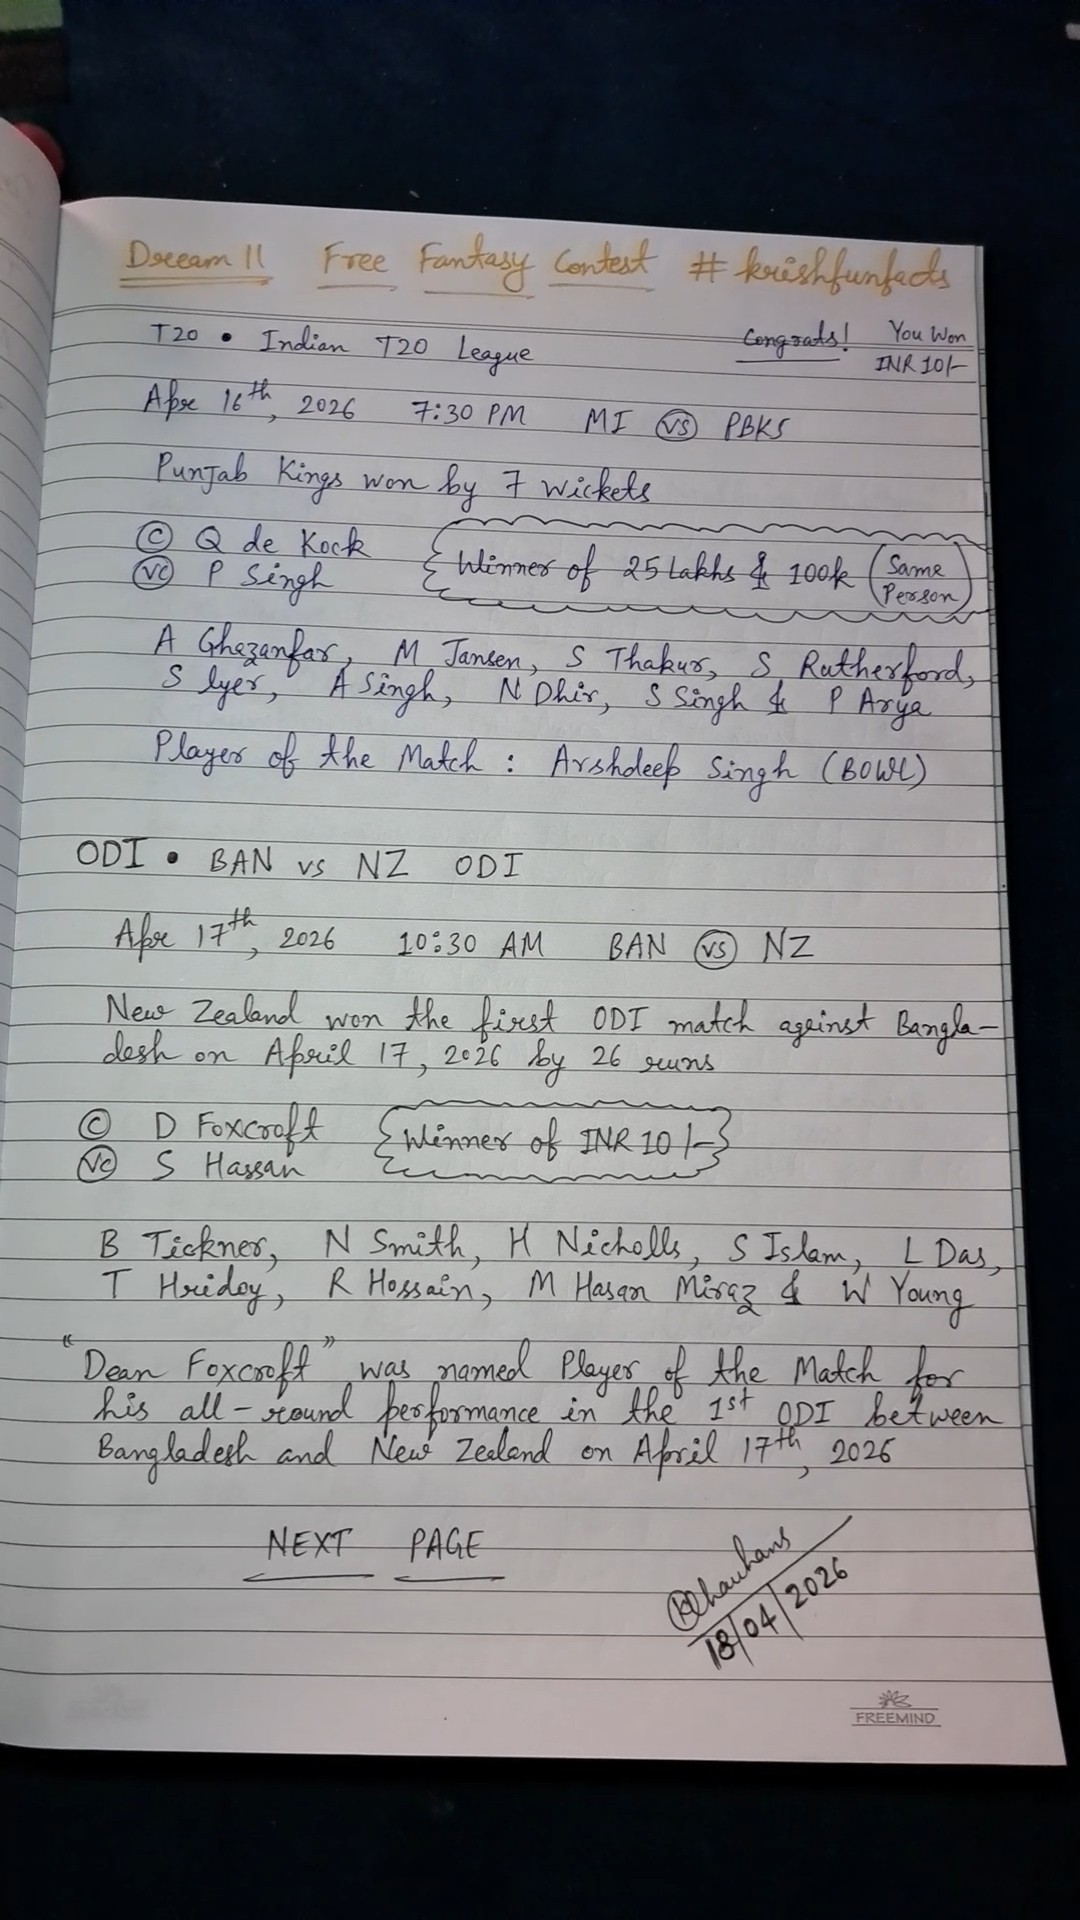 Dream 11 Free Fantasy Contest #krishfunfacts
T20 • Indian T20 League Congrats! You Won
INR 10/-
Apr 16th, 2026 7:30 PM MI vs PBKS
Punjab Kings won by 7 wickets
C Q de Kock
VC P Singh
Winner of 25 Lakhs & 100k (Same Person)
A Ghazanfar, M Jansen, S Thakur, S Rutherford,
S Iyer, A Singh, N Dhir, S Singh & P Arya
Player of the Match : Arshdeep Singh (BOWL)
ODI • BAN vs NZ ODI
Apr 17th, 2026 10:30 AM BAN vs NZ
New Zealand won the first ODI match against Bangla-
desh on April 17, 2026 by 26 runs
C D Foxcroft
VC S Hassan
Winner of INR 10/-
B Tickner, N Smith, H Nicholls, S Islam, L Das,
T Hridoy, R Hossain, M Hasan Miraz & W Young
"Dean Foxcroft" was named Player of the Match for
his all-round performance in the 1st ODI between
Bangladesh and New Zealand on April 17th, 2026
NEXT PAGE
18/04/2026
FREEMIND